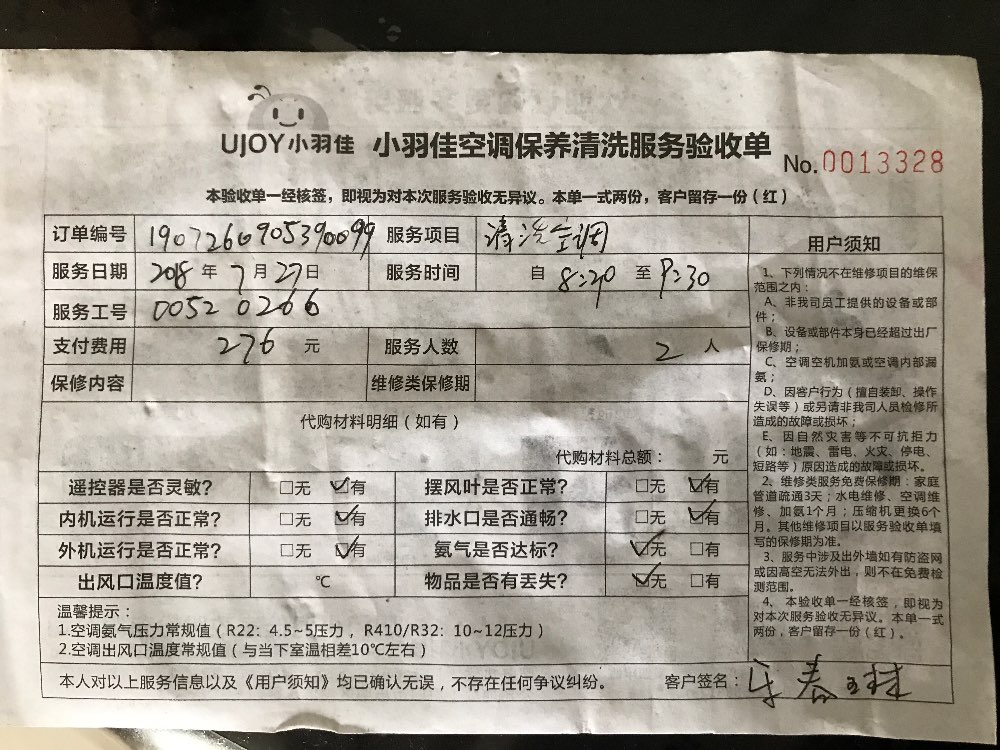 UJOY小羽佳 小羽佳空调保养清洗服务验收单
No.0013328
本验收单一经核签，即视为对本次服务验收无异议。本单一式两份，客户留存一份（红）
订单编号 1907260905390099 服务项目 清洗空调
服务日期 2018年7月27日 服务时间 自 8:20 至 9:30
服务工号 00520266
支付费用 276 元 服务人数 2 人
保修内容 维修类保修期
代购材料明细（如有）
代购材料总额： 元
遥控器是否灵敏? □无 ☑有 摆风叶是否正常? □无 ☑有
内机运行是否正常? □无 ☑有 排水口是否通畅? □无 ☑有
外机运行是否正常? □无 ☑有 氨气是否达标? ☑无 □有
出风口温度值? ℃ 物品是否有丢失? ☑无 □有
温馨提示：
1.空调氨气压力常规值（R22：4.5~5压力，R410/R32：10~12压力）
2.空调出风口温度常规值（与当下室温相差10℃左右）
本人对以上服务信息以及《用户须知》均已确认无误，不存在任何争议纠纷。 客户签名：
用户须知
1、下列情况不在维修项目的维保
范围之内：
A、非我司员工提供的设备或部
件；
B、设备或部件本身已经超过出厂
保修期；
C、空调空机加氨或空调内部漏
氨；
D、因客户行为（擅自装卸、操作
失误等）或另请非我司人员检修所
造成的故障或损坏；
E、因自然灾害等不可抗拒力
（如：地震、雷电、火灾、停电、
短路等）原因造成的故障或损坏。
2、维修类服务免费保修期：家庭
管道疏通3天；水电维修、空调维
修、加氨1个月；压缩机更换6个
月。其他维修项目以服务验收单填
写的保修期为准。
3、服务中涉及出外墙如有防盗网
或因高空无法外出，则不在免费检
测范围。
4、本验收单一经核签，即视为
对本次服务验收无异议。本单一式
两份，客户留存一份（红）。